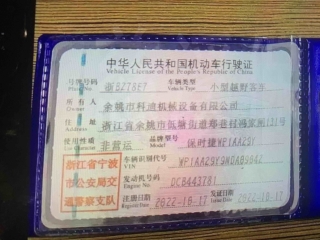 中华人民共和国机动车行驶证
Vehicle License of the People's Republic of China
号牌号码
Plate No.
车辆类型
Vehicle Type
小型越野客车
所有人
Owner
余姚市科迪机械设备有限公司
住址
Address
浙江省余姚市低塘街道郑巷村冯家
使用性质
Use Character
非营运
品牌型号
Model
保时捷WP1AA29Y
浙江省宁波
市公安局交
通警察支队
车辆识别代号
VIN
发动机号码
Engine No.
DCB443781
注册日期
Register Date
发证日期
Issue Date